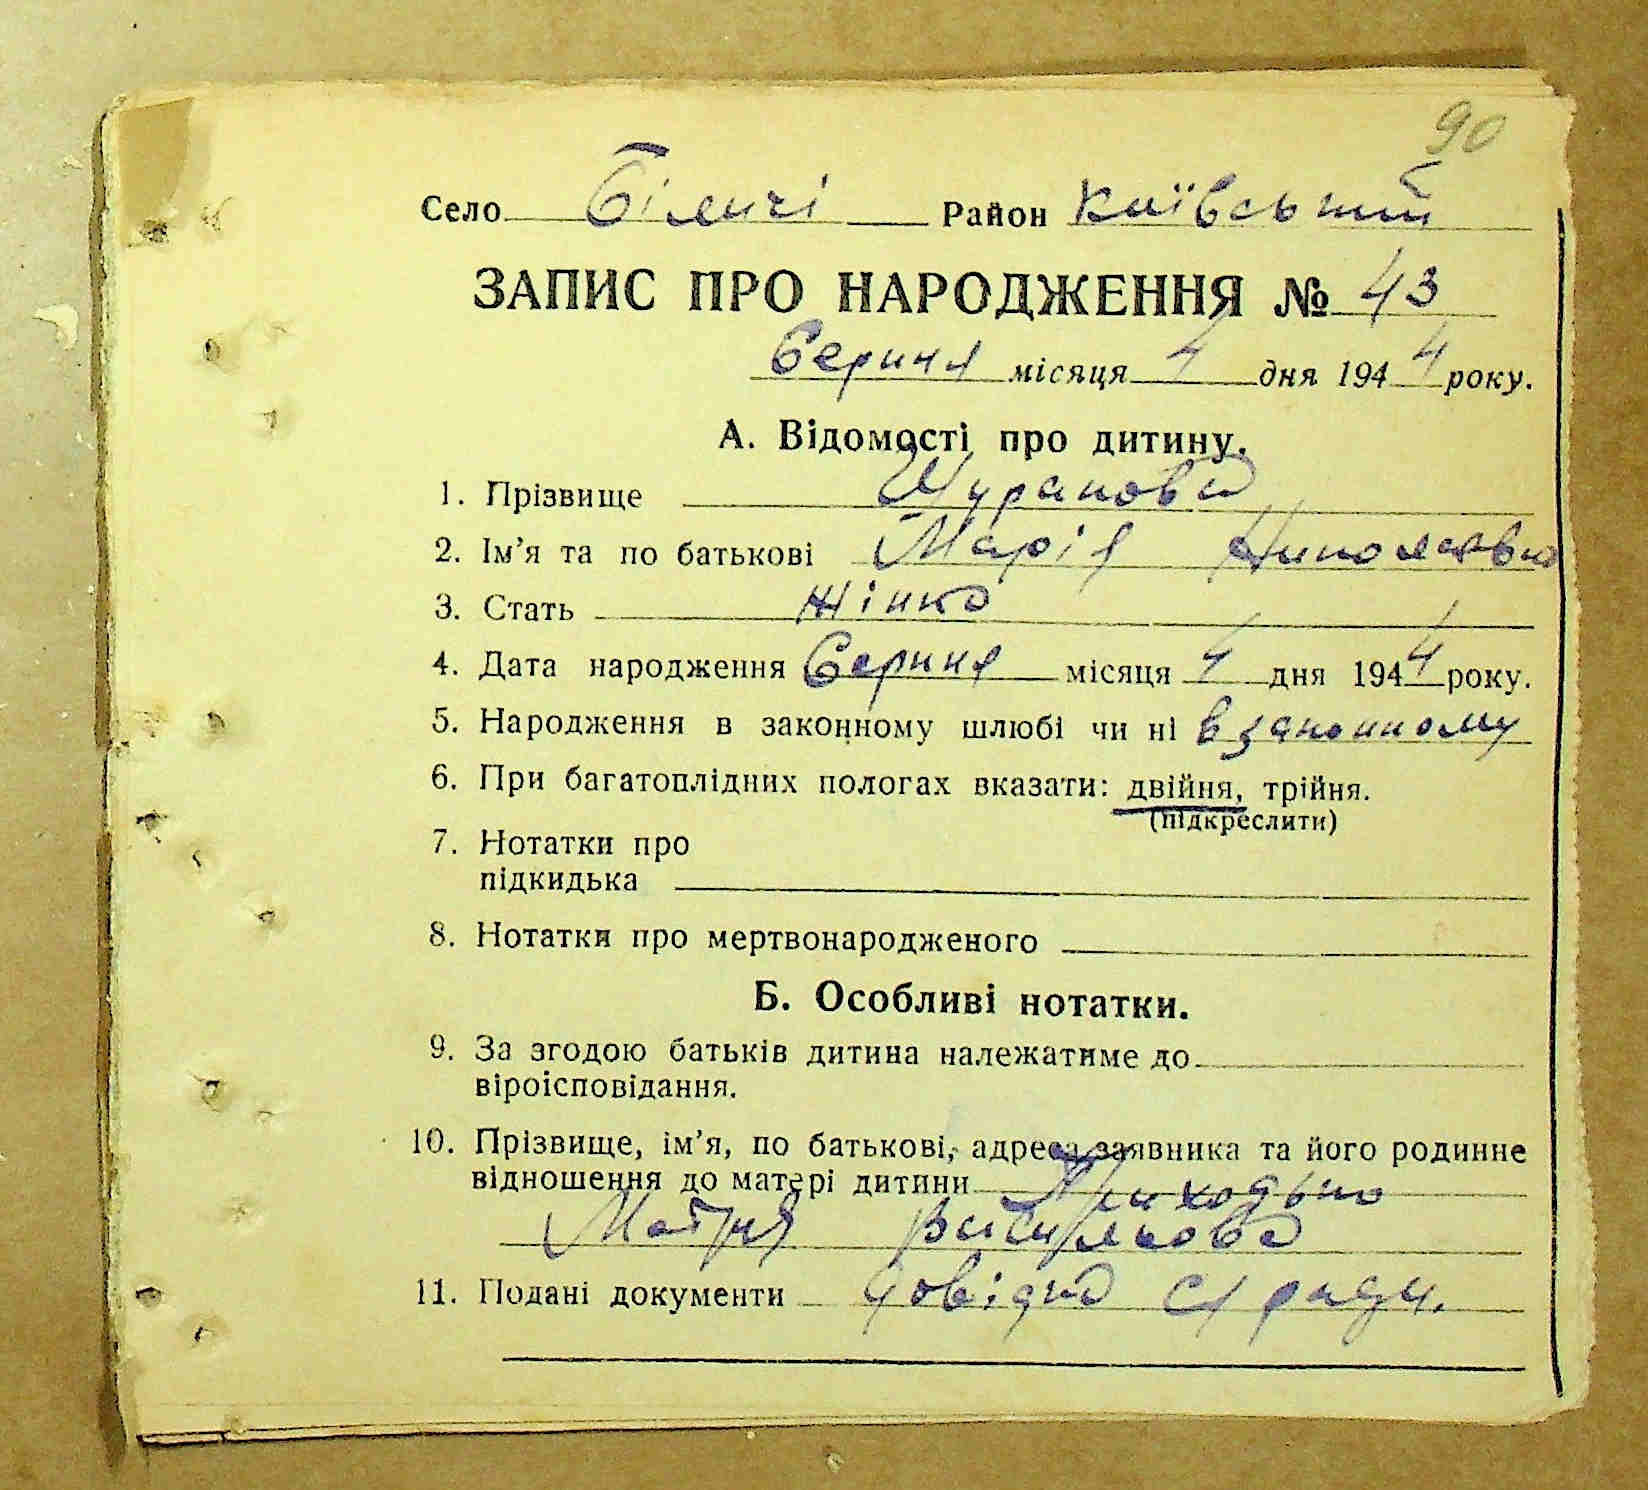 90
Село Біличі Район Київський
ЗАПИС ПРО НАРОДЖЕННЯ № 43
Серпня місяця 4 дня 1944 року.
А. Відомості про дитину.
1. Прізвище Муранова
2. Ім'я та по батькові Марія Николаевна
3. Стать жінка
4. Дата народження Серпня місяця 4 дня 1944 року.
5. Народження в законному шлюбі чи ні в законному
6. При багатоплідних пологах вказати: двійня, трійня.
(підкреслити)
7. Нотатки про
підкидька
8. Нотатки про мертвонародженого
Б. Особливі нотатки.
9. За згодою батьків дитина належатиме до
віроісповідання.
10. Прізвище, ім'я, по батькові, адреса заявника та його родинне
відношення до матері дитини Приходько
Мотря Васильова
11. Подані документи довідка с/ради.